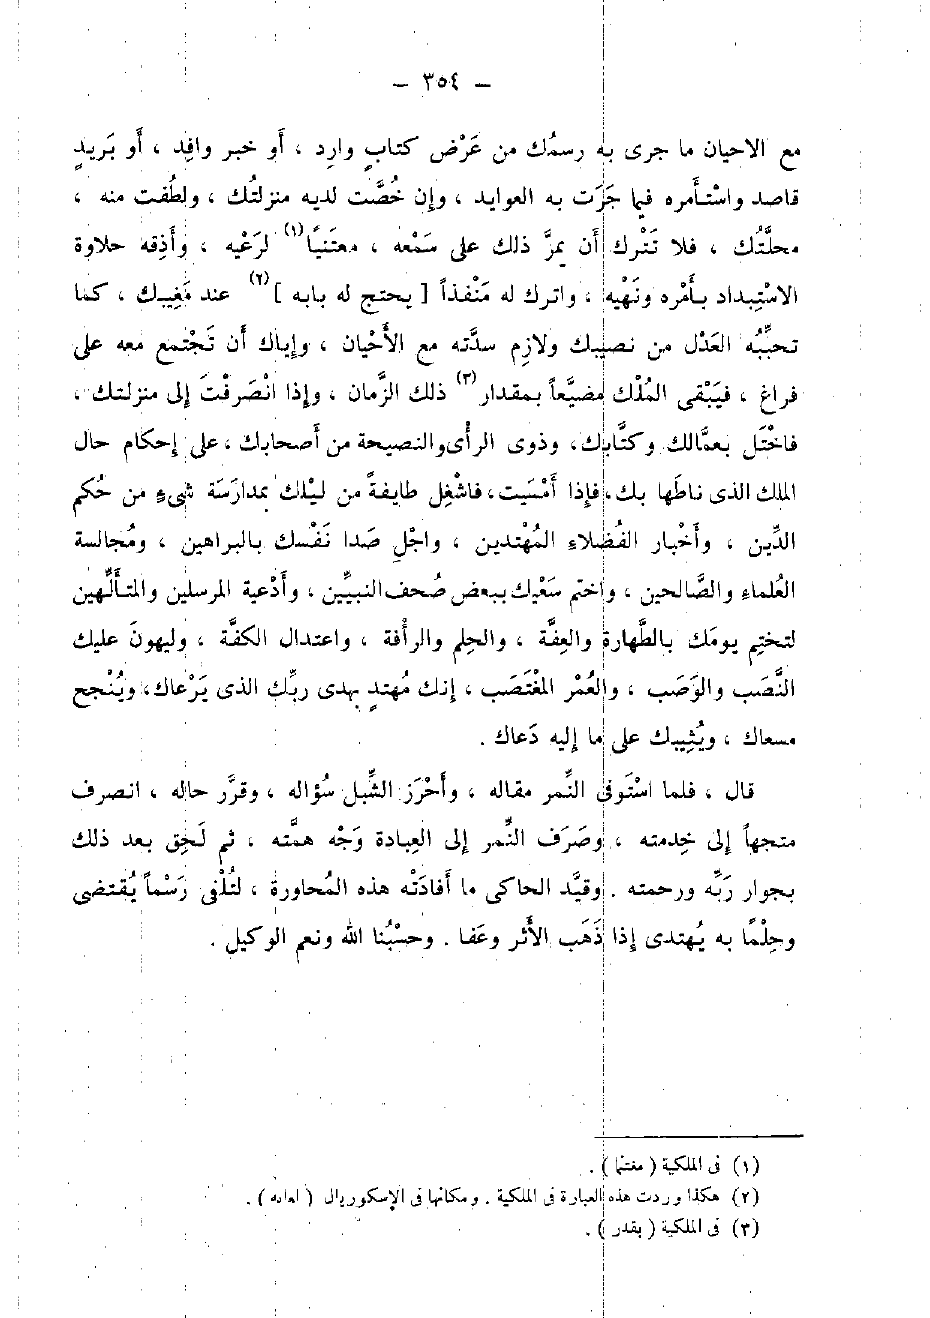 — ٣٥٤ —
مع الاحيان ما جرى به رسمُك من عَرْض كتابٍ وارِد ، أو خبر وافِد ، أو بَريدٍ
قاصد واسْتأمره فيما جَرَت به العوايد ، وإن خُصَّت لديه منزلتُك ، ولطُفت منه ،
محلَّتُك ، فلا تَتْرك أن يمرَّ ذلك على سَمْعه ، معتَنياً (١) لرَعْيه ، وأَذِقه حلاوة
الاسْتِبداد بأمْره ونَهْيه ، واترك له مَنْفذاً [ يحتج له بابه ] (٢) عند مَغِيبك ، كما
تحبِّبُه العَدْل من نصيبك ولازِم سدَّته مع الأَحْيان ، وإياك أن تَجْتمع معه على
فراغ ، فيَبْقى المُلْك مضيَّعاً بمقدار (٣) ذلك الزَّمان ، وإذا انْصَرفْتَ إلى منزلتك ،
فاخْتَل بعمَّالك وكتَّابك ، وذوى الرأى والنصيحة من أصحابك ، على إحكام حال
الملك الذى ناطَها بك ، فإذا أَمْسَيت ، فاشْغِل طايفةً من ليْلك بمدارَسَة شىءٍ من حُكم
الدِّين ، وأخْبار الفُضلاءِ المُهْتدين ، واجْلِ صَدا نَفْسك بالبراهين ، ومُجالسة
العُلماءِ والصَّالحين ، واختم سَعْيك ببعض صُحف النبيِّين ، وأدْعية المرسلين والمتألِّهين
لتختِم يومَك بالطَّهارة والعِفَّة ، والحِلم والرأْفة ، واعتدال الكفَّة ، وليهونَ عليك
النَّصَب والوَصَب ، والعُمْر المغْتَصَب ، إنك مُهتدٍ بهدى ربِّك الذى يَرْعاك ، ويُنْجح
مسعاك ، ويُثِيبك على ما إليه دَعاك .
قال ، فلما اسْتَوفى النَّمِر مقاله ، وأحْرَز الشِّبل سُؤاله ، وقرَّر حاله ، انصرف
متجهاً إلى خِدمته ، وصَرَف النَّمِر إلى العِبادة وَجْه همَّته ، ثم لَحِق بعد ذلك
بجوار رَبِّه ورحمته . وقيَّد الحاكى ما أفادَتْه هذه المُحاورة ، لتُلْفى رَسْماً يُقتضى
وحِلْمًا به يُهتدى إذا ذَهَب الأثر وعَفا . وحسْبُنا الله ونعم الوكيل .
(١) فى الملكية ( مغتنما ) .
(٢) هكذا وردت هذه العبارة فى الملكية . ومكانها فى الإسكوريال ( لعابه ) .
(٣) فى الملكية ( بقدر ) .